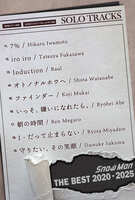 SOLO TRACKS
7% / Hikaru Iwamoto
iro iro / Tatsuya Fukazawa
Induction / Raul
オトノナルホウヘ / Shota Watanabe
ファインダー / Koji Mukai
いっそ、嫌いになれたら。 / Ryohei Abe
朝の時間 / Ren Meguro
I・だって止まらない / Ryota Miyadate
守りたい、その笑顔 / Daisuke Sakuma
Snow Man
THE BEST 2020-2025